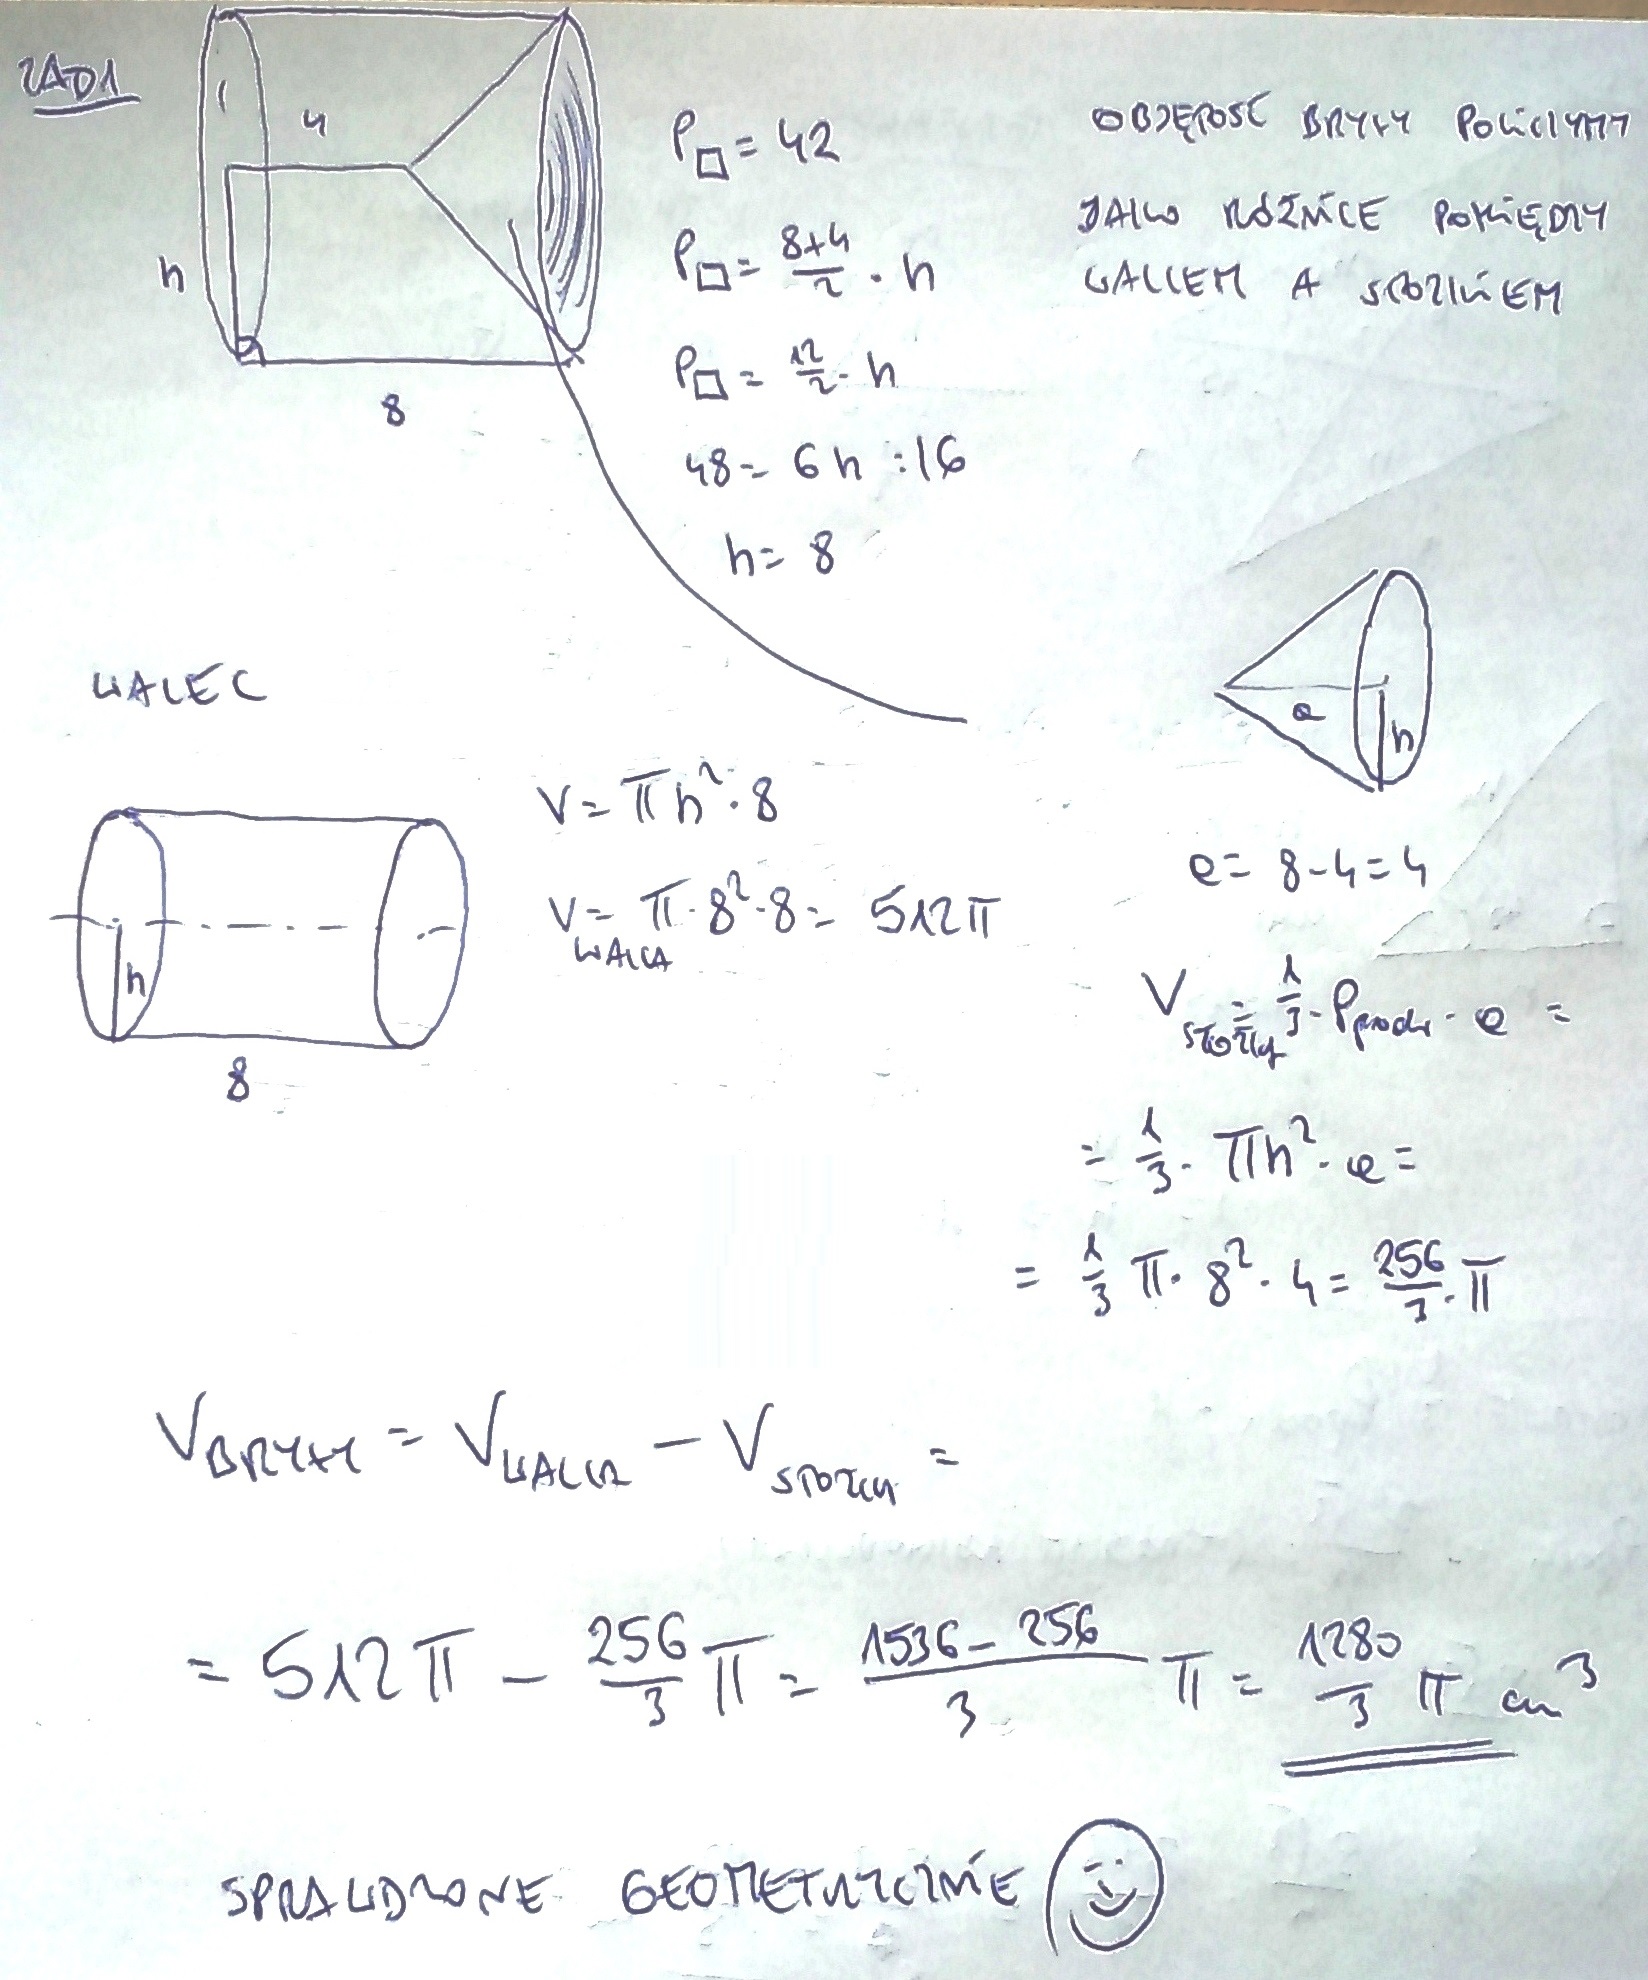 ZAD1
4
h
8
P□ = 42
P□ = 8+4/2 · h
P□ = 12/2 · h
48 = 6h :16
h = 8
OBJĘTOŚĆ BRYŁY POLICZYMY
JAKO RÓŻNICE POMIĘDZY
WALCEM A STOŻKIEM
WALEC
h
8
V = πh² · 8
V WALCA = π · 8² · 8 = 512π
e
h
e = 8 - 4 = 4
V STOŻKA = 1/3 · Ppodst · e =
= 1/3 · πh² · e =
= 1/3 π · 8² · 4 = 256/3 · π
V BRYŁY = V WALCA - V STOŻKA =
= 512π - 256/3 π = 1536 - 256/3 π = 1280/3 π cm³
SPRAWDZONE GEOMETRYCZNIE